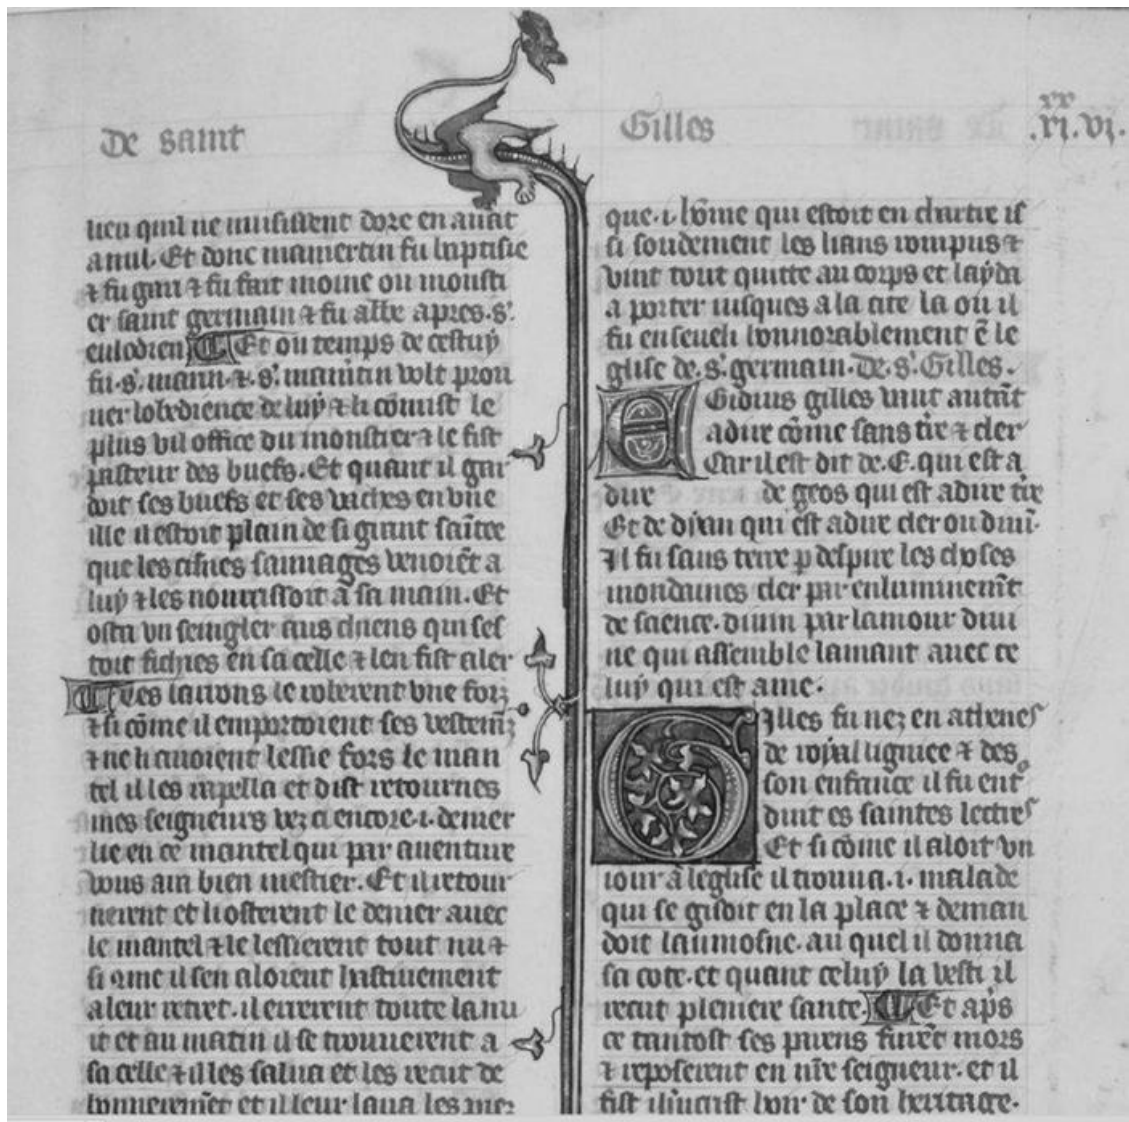 De saint
Gilles
xx
.vi.vi.
lieu quil ne meissent dore en auāt
a nul. Et donc mamertin fu baptisie
⁊ fu gari ⁊ fu fait moine ou mousti
er saint germain ⁊ fu abbe apres .s᾽.
eulodien Et ou temps de cestuy
fu .s᾽. marin .⁊. s᾽. mam̄tin volt prou
uer lobedience de luy ⁊ li cōmist le
plus vil office du monstier ⁊ le fist
pasteur des buefs. Et quant il gar
doit ses buefs et ses vaches en vne
ille il estoit plain de si grant saītee
que les cisnes sauuages venoiēt a
luy ⁊ les nourrissoit a sa main. Et
osta vn sengler aus chiens qui ses
toit fichies en sa celle ⁊ len fist aler
Les larrons le roberent vne foiz
⁊ si cōme il emportoient ses vestemz
⁊ ne li auoient lessie fors le man
tel il les rapella et dist retournes
mes seigneurs vez ci encore .i. denier
lie en ce mantel qui par auenture
vous aura bien mestier. Et il retour
nerent et li osterent le denier auec
le mantel ⁊ le lessierent tout nu ⁊
si 9me il sen aloient hastiuement
a leur recet. il errerent toute la nu
it et au matin il se trouuerent a
sa celle ⁊ il les salua et les recut de
bonnerem̄et et il leur laua les piez
que .i. hōme qui estoit en chartre if
si soudement les lians rompus ⁊
vint tout quitte au corps et layda
a porter iusques a la cite la ou il
fu enseueli honnorablement ē le
glise de .s᾽. germain. De .s᾽. Gilles.
EGidius gilles vaut autāt
a dire cōme sans tr̄e ⁊ cler
Car il est dit de .E. qui est a
dire de geos qui est a dire tr̄e
Et de dyan qui est a dire cler ou diuī.
Il fu sans terre p despire les choses
mondaines cler par enluminem̄t
de science. diuin par lamour diui
ne qui assemble lamant auec ce
luy qui est ame.
GIlles fu nez en athenes
de royal ligniee ⁊ des
son enfance il fu ent
duit es saintes lectres
Et si cōme il aloit vn
iour a leglise il trouua .i. malade
qui se gisoit en la place ⁊ deman
doit laumosne. au quel il donna
sa cote. et quant celuy la vesti il
recut pleniere sante. Et ap̄s
ce tantost ses parens furēt mors
⁊ reposerent en nr̄e seigneur. et il
fist ihūcrist hoir de son heritage.